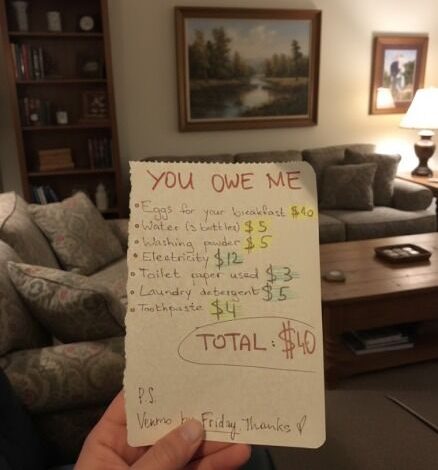 YOU OWE ME
• Eggs for your breakfast $10
• Water (3 bottles) $5
• Washing powder $5
• Electricity $12
• Toilet paper used $3
• Laundry detergent $5
• Toothpaste $4
TOTAL: $40
P.S.
Venmo by Friday. Thanks